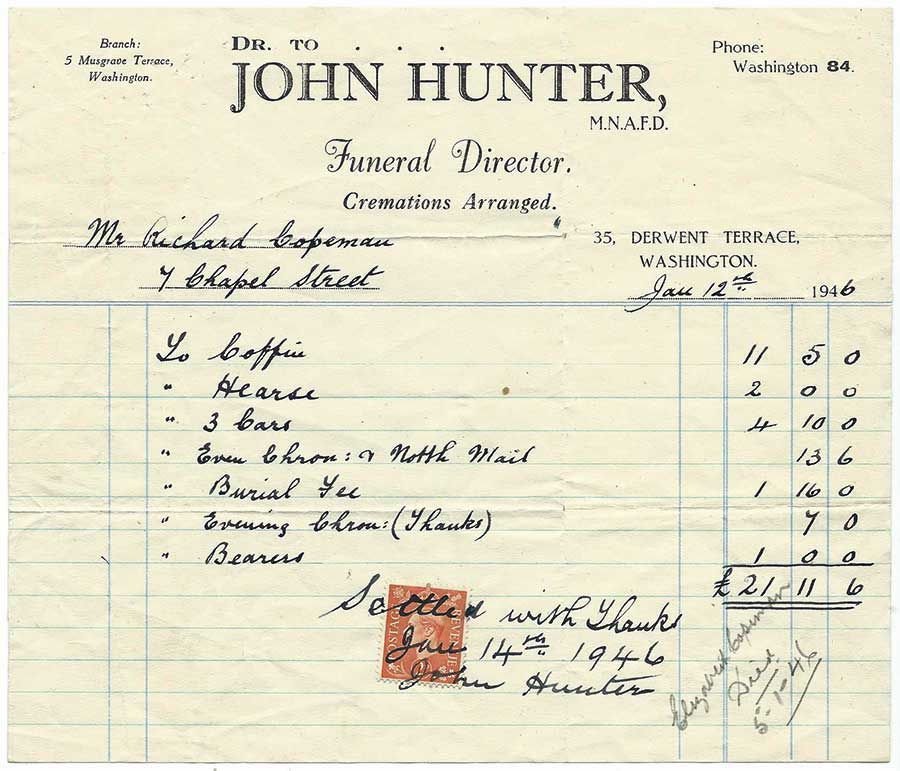 Branch:
5 Musgrave Terrace,
Washington.
DR. TO . . .
JOHN HUNTER,
M.N.A.F.D.
Phone:
Washington 84.
Funeral Director.
Cremations Arranged.
Mr Richard Copeman
7 Chapel Street
35, DERWENT TERRACE,
WASHINGTON.
Jan 12th 1946
To Coffin 11 5 0
" Hearse 2 0 0
" 3 Cars 4 10 0
" Even Chron: & North Mail 13 6
" Burial Fee 1 16 0
" Evening Chron: (Thanks) 7 0
" Bearers 1 0 0
£ 21 11 6
Settled with Thanks
Jan 14th 1946
John Hunter
POSTAGE REVENUE
Elizabeth Copeman
Died
5-1-46